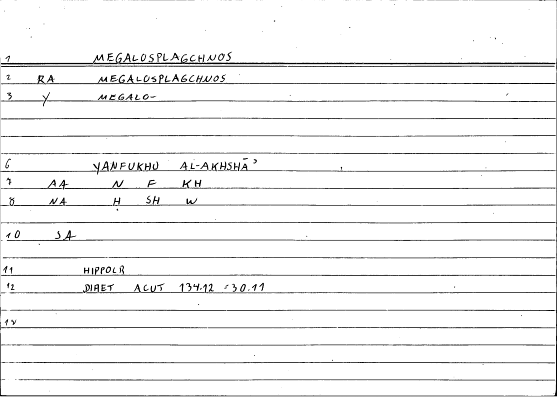 1 MEGALOSPLAGCHNOS
2 RA MEGALOSPLAGCHNOS
3 Y MEGALO-
6 YANFUKHU AL-AKHSHĀʾ
7 AA N F KH
8 NA H SH W
10 JA
11 HIPPOLR
12 DIAET ACUT 134.12 = 30.11